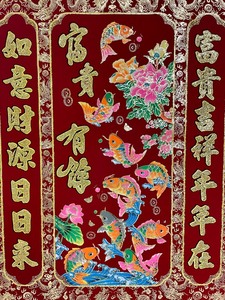 富貴吉祥年年在
富貴有餘
如意財源日日來